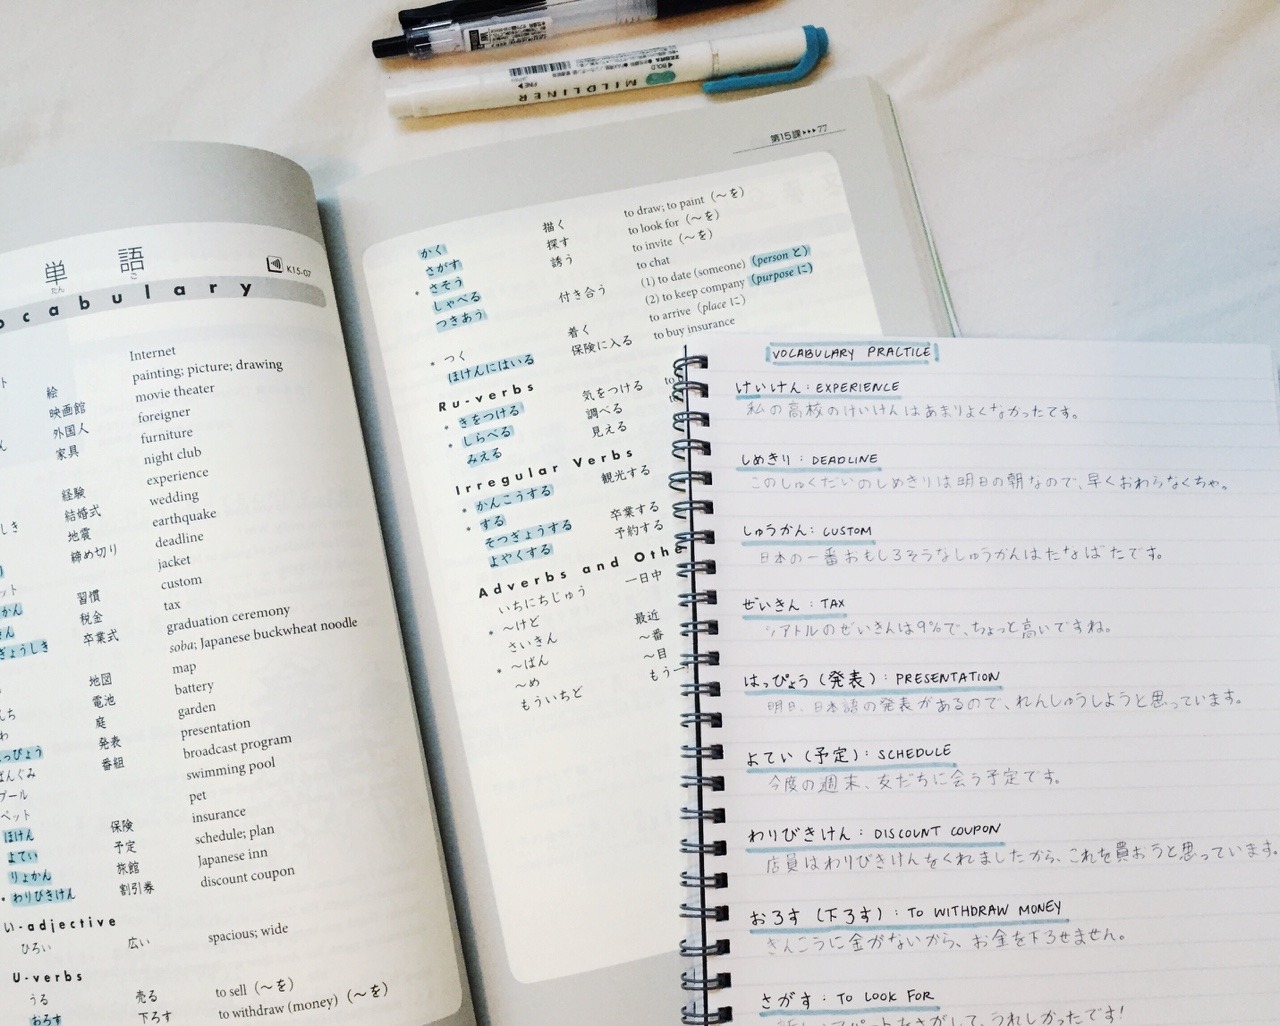 MILDLINER
ZEBRA
BOLD
FINE
第15課▸▸▸77
単語
たん ご
ocabulary
K15-07
Internet
絵 painting; picture; drawing
映画館 movie theater
外国人 foreigner
家具 furniture
night club
経験 experience
結婚式 wedding
地震 earthquake
締め切り deadline
jacket
習慣 custom
税金 tax
卒業式 graduation ceremony
soba; Japanese buckwheat noodle
地図 map
電池 battery
庭 garden
発表 presentation
番組 broadcast program
プール swimming pool
ペット pet
ほけん 保険 insurance
よてい 予定 schedule; plan
りょかん 旅館 Japanese inn
わりびきけん 割引券 discount coupon
い-adjective
ひろい 広い spacious; wide
U-verbs
うる 売る to sell (～を)
おろす 下ろす to withdraw (money) (～を)
かく 描く to draw; to paint (～を)
さがす 探す to look for (～を)
さそう 誘う to invite (～を)
しゃべる to chat
つきあう 付き合う (1) to date (someone) (person と)
(2) to keep company (purpose に)
つく 着く to arrive (place に)
ほけんにはいる 保険に入る to buy insurance
Ru-verbs
きをつける 気をつける
しらべる 調べる
みえる 見える
Irregular Verbs
かんこうする 観光する
する
そつぎょうする 卒業する
よやくする 予約する
Adverbs and Othe
いちにちじゅう 一日中
～けど
さいきん 最近
～ばん ～番
～め ～目
もういちど もう一
VOCABULARY PRACTICE
けいけん : EXPERIENCE
私の高校のけいけんはあまりよくなかったです。
しめきり : DEADLINE
このしゅくだいのしめきりは明日の朝なので、早くおわらなくちゃ。
しゅうかん : CUSTOM
日本の一番おもしろそうなしゅうかんはたなばたです。
ぜいきん : TAX
シアトルのぜいきんは9%で、ちょっと高いですね。
はっぴょう (発表) : PRESENTATION
明日、日本語の発表があるので、れんしゅうしようと思っています。
よてい (予定) : SCHEDULE
今度の週末、友だちに会う予定です。
わりびきけん : DISCOUNT COUPON
店員はわりびきけんをくれましたから、これを買おうと思っています。
おろす (下ろす) : TO WITHDRAW MONEY
ぎんこうに金がないから、お金を下ろせません。
さがす : TO LOOK FOR
アパートをさがして、うれしかったです!